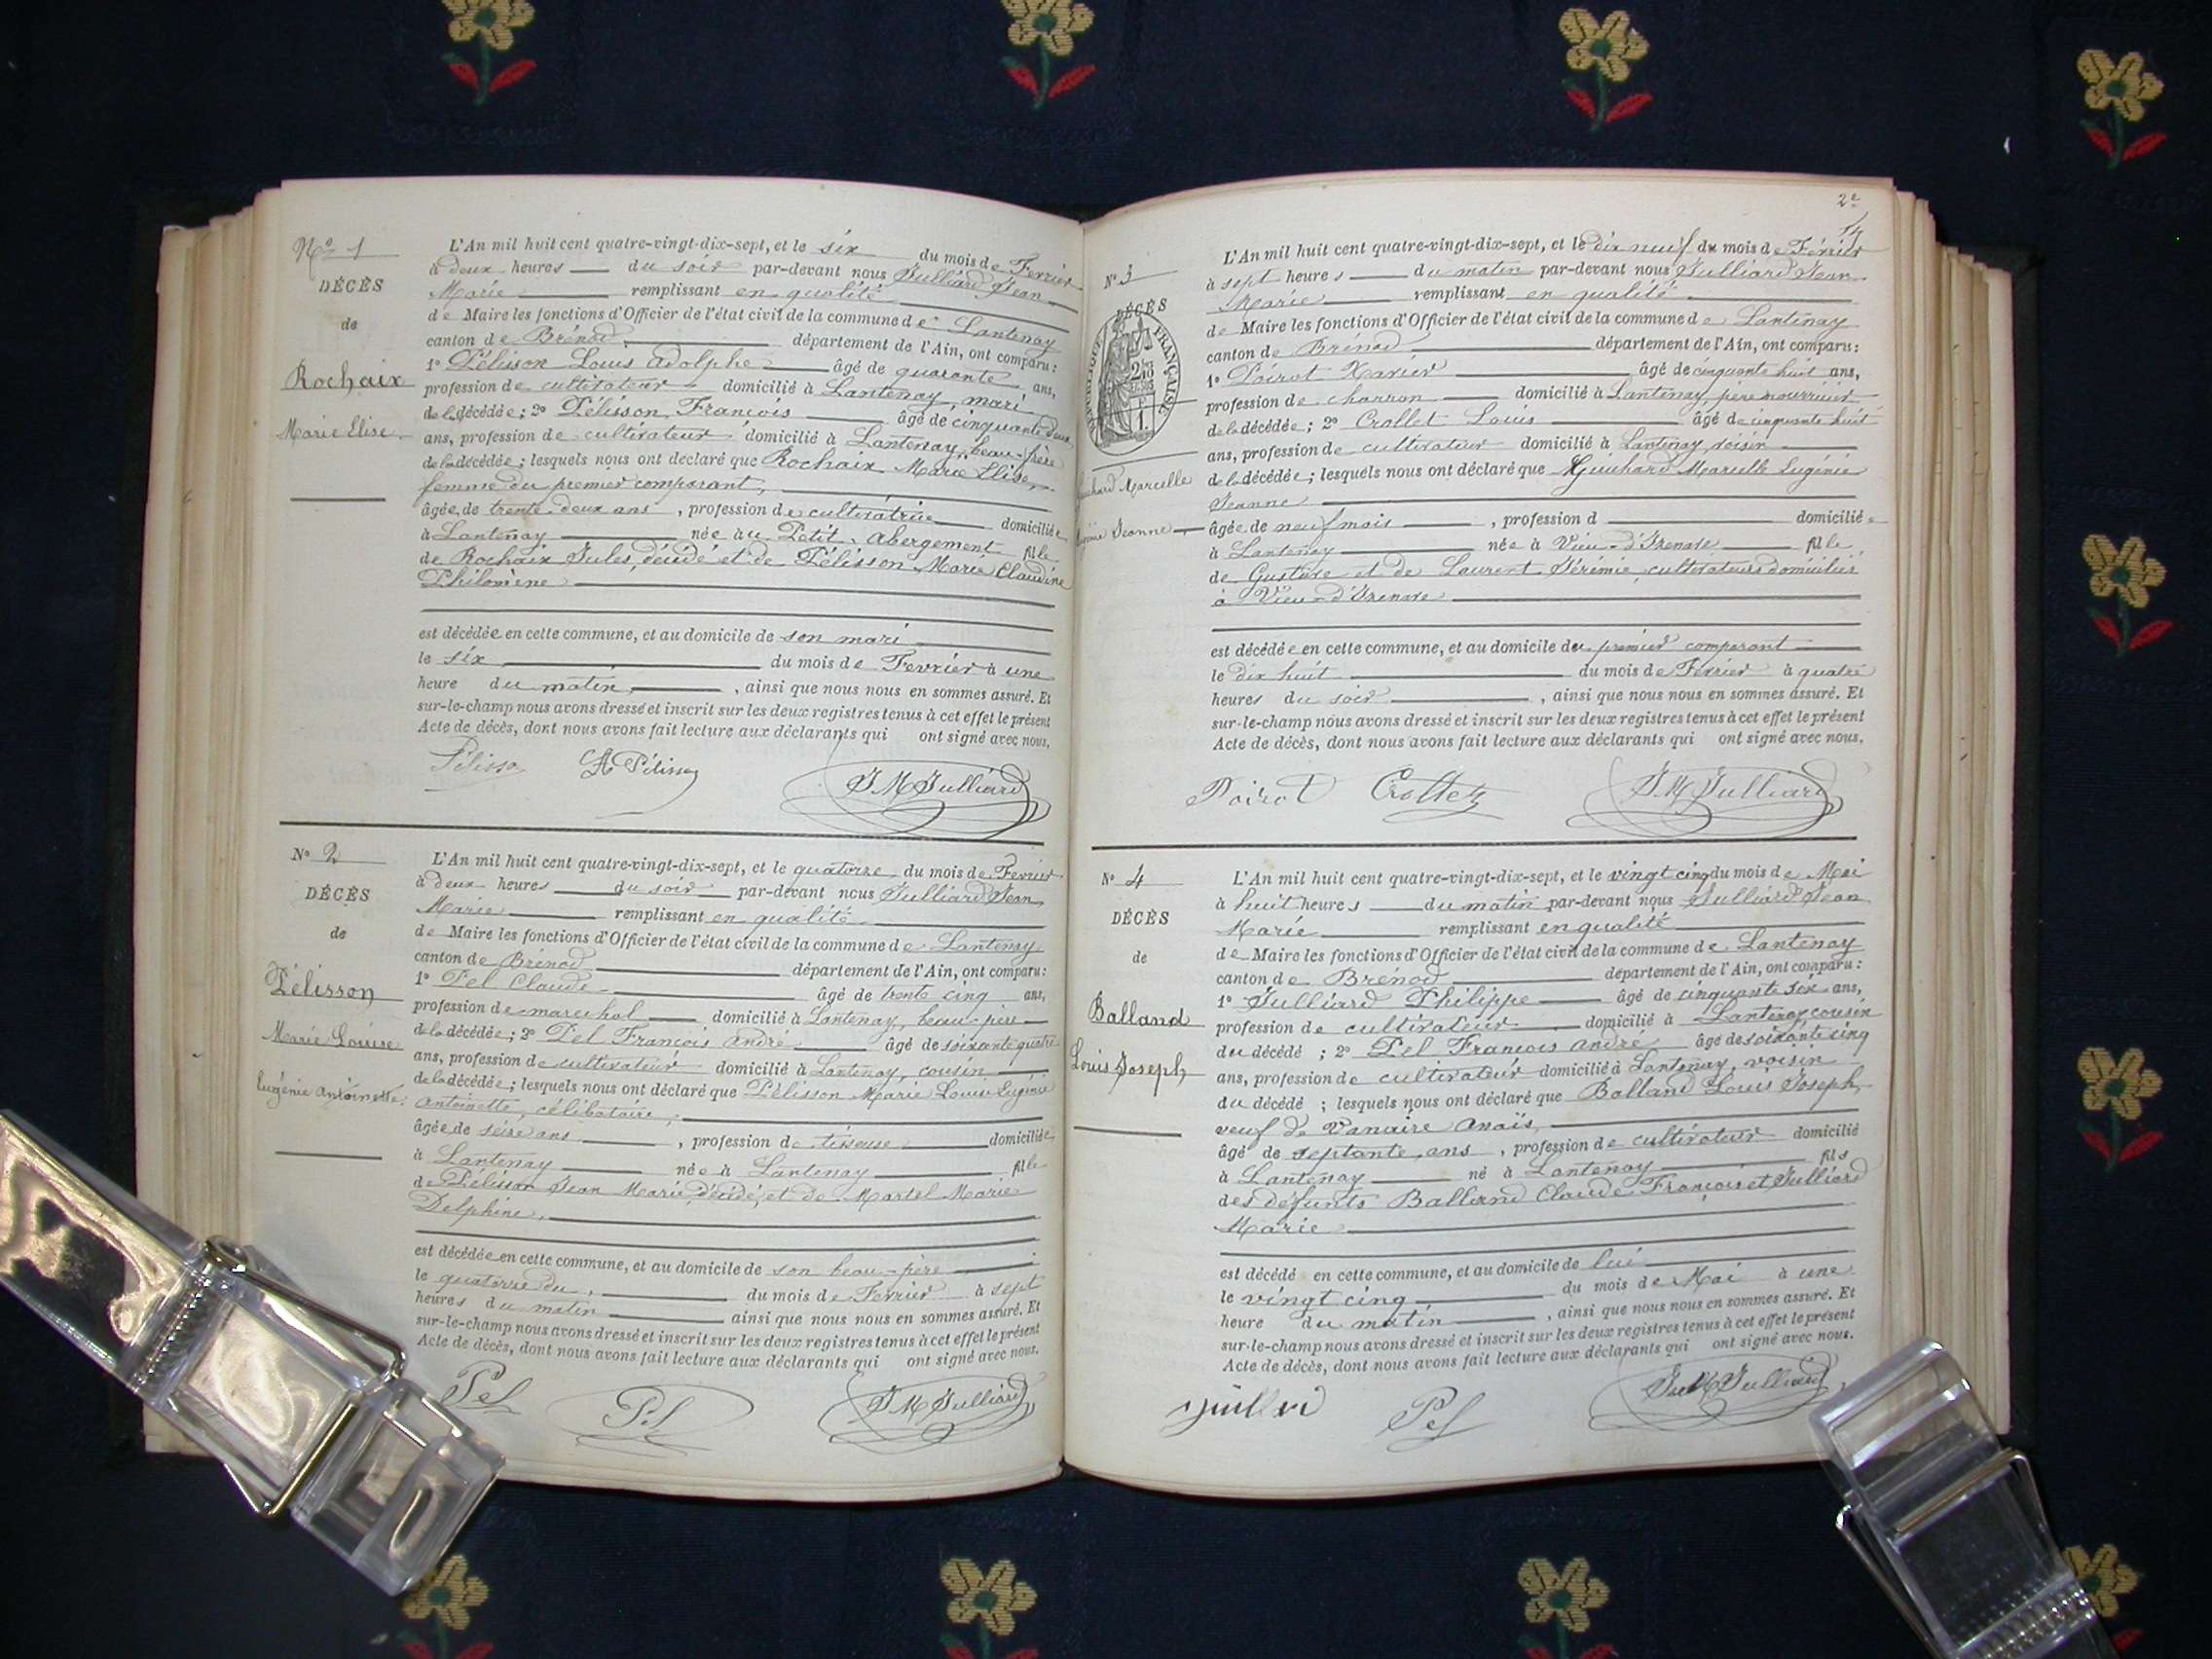 No 1
DÉCÈS
de
Rochaix
Marie Elise
L'An mil huit cent quatre-vingt-dix-sept, et le six du mois de Fevrier
à deux heures du soir par-devant nous Julliard Jean
Marie remplissant en qualité
de Maire les fonctions d'Officier de l'état civil de la commune de Lantenay
canton de Brénod département de l'Ain, ont comparu:
1º Pélisson Louis Adolphe âgé de quarante ans,
profession de cultivateur domicilié à Lantenay, mari
de la décédée; 2º Pélisson François âgé de cinquante deux
ans, profession de cultivateur domicilié à Lantenay, beau-frère
de la décédée; lesquels nous ont déclaré que Rochaix Marie Elise,
femme du premier comparant,
âgée de trente-deux ans, profession de cultivatrice domiciliée
à Lantenay née au Petit Abergement fille
de Rochaix Jules, décédé et de Pélisson Marie Claudine
Philomène
est décédée en cette commune, et au domicile de son mari
le six du mois de Fevrier à une
heure du matin, ainsi que nous nous en sommes assuré. Et
sur-le-champ nous avons dressé et inscrit sur les deux registres tenus à cet effet le présent
Acte de décès, dont nous avons fait lecture aux déclarants qui ont signé avec nous.
Pélisson A Pélisson J M Julliard
No 2
DÉCÈS
de
Pélisson
Marie Louise
Eugénie Antoinette.
L'An mil huit cent quatre-vingt-dix-sept, et le quatorze du mois de Fevrier
à deux heures du soir par-devant nous Julliard Jean
Marie remplissant en qualité
de Maire les fonctions d'Officier de l'état civil de la commune de Lantenay
canton de Brénod département de l'Ain, ont comparu:
1º Pel Claude âgé de trente cinq ans,
profession de marechal domicilié à Lantenay, beau-père
de la décédée; 2º Pel François André âgé de soixante quatre
ans, profession de cultivateur domicilié à Lantenay, cousin
de la décédée; lesquels nous ont déclaré que Pélisson Marie Louise Eugénie
Antoinette, célibataire,
âgée de seize ans, profession de tisseuse domiciliée
à Lantenay née à Lantenay fille
de Pélisson Jean Marie, décédé, et de Martel Marie
Delphine,
est décédée en cette commune, et au domicile de son beau-père
le quatorze du, du mois de Fevrier à sept
heures du matin ainsi que nous nous en sommes assuré. Et
sur-le-champ nous avons dressé et inscrit sur les deux registres tenus à cet effet le présent
Acte de décès, dont nous avons fait lecture aux déclarants qui ont signé avec nous.
Pel Pel J M Julliard
2e
No 3
DÉCÈS
RÉPUBLIQUE FRANÇAISE
Marcelle
Jeanne
L'An mil huit cent quatre-vingt-dix-sept, et le dix neuf du mois de Février
à sept heures du matin par-devant nous Julliard Jean
Marie remplissant en qualité
de Maire les fonctions d'Officier de l'état civil de la commune de Lantenay
canton de Brénod département de l'Ain, ont comparu:
1º Poirot Xavier âgé de cinquante huit ans,
profession de charron domicilié à Lantenay, père nourricier
de la décédée; 2º Crollet Louis âgé de cinquante huit
ans, profession de cultivateur domicilié à Lantenay, voisin
de la décédée; lesquels nous ont déclaré que Guichard Marcelle Eugénie
Jeanne
âgée de neuf mois, profession d domiciliée
à Lantenay née à Vieu-d'Izenave fille
de Gustave et de Laurent Jérémie, cultivateurs domiciliés
à Vieu-d'Izenave
est décédée en cette commune, et au domicile du premier comparant
le dix huit du mois de Fevrier à quatre
heures du soir, ainsi que nous nous en sommes assuré. Et
sur-le-champ nous avons dressé et inscrit sur les deux registres tenus à cet effet le présent
Acte de décès, dont nous avons fait lecture aux déclarants qui ont signé avec nous.
Poirot Crollet J. M. Julliard
No 4
DÉCÈS
de
Balland
Louis Joseph
L'An mil huit cent quatre-vingt-dix-sept, et le vingt cinq du mois de Mai
à huit heures du matin par-devant nous Julliard Jean
Marie remplissant en qualité
de Maire les fonctions d'Officier de l'état civil de la commune de Lantenay
canton de Brénod département de l'Ain, ont comparu:
1º Julliard Philippe âgé de cinquante six ans,
profession de cultivateur domicilié à Lantenay cousin
du décédé; 2º Pel François André âgé de soixante cinq
ans, profession de cultivateur domicilié à Lantenay, voisin
du décédé; lesquels nous ont déclaré que Balland Louis Joseph,
veuf de Vanaire Anaïs,
âgé de septante ans, profession de cultivateur domicilié
à Lantenay né à Lantenay fils
des défunts Balland Claude François et Julliard
Marie
est décédé en cette commune, et au domicile de lui
le vingt cinq du mois de Mai à une
heure du matin, ainsi que nous nous en sommes assuré. Et
sur-le-champ nous avons dressé et inscrit sur les deux registres tenus à cet effet le présent
Acte de décès, dont nous avons fait lecture aux déclarants qui ont signé avec nous.
Pel J M Julliard